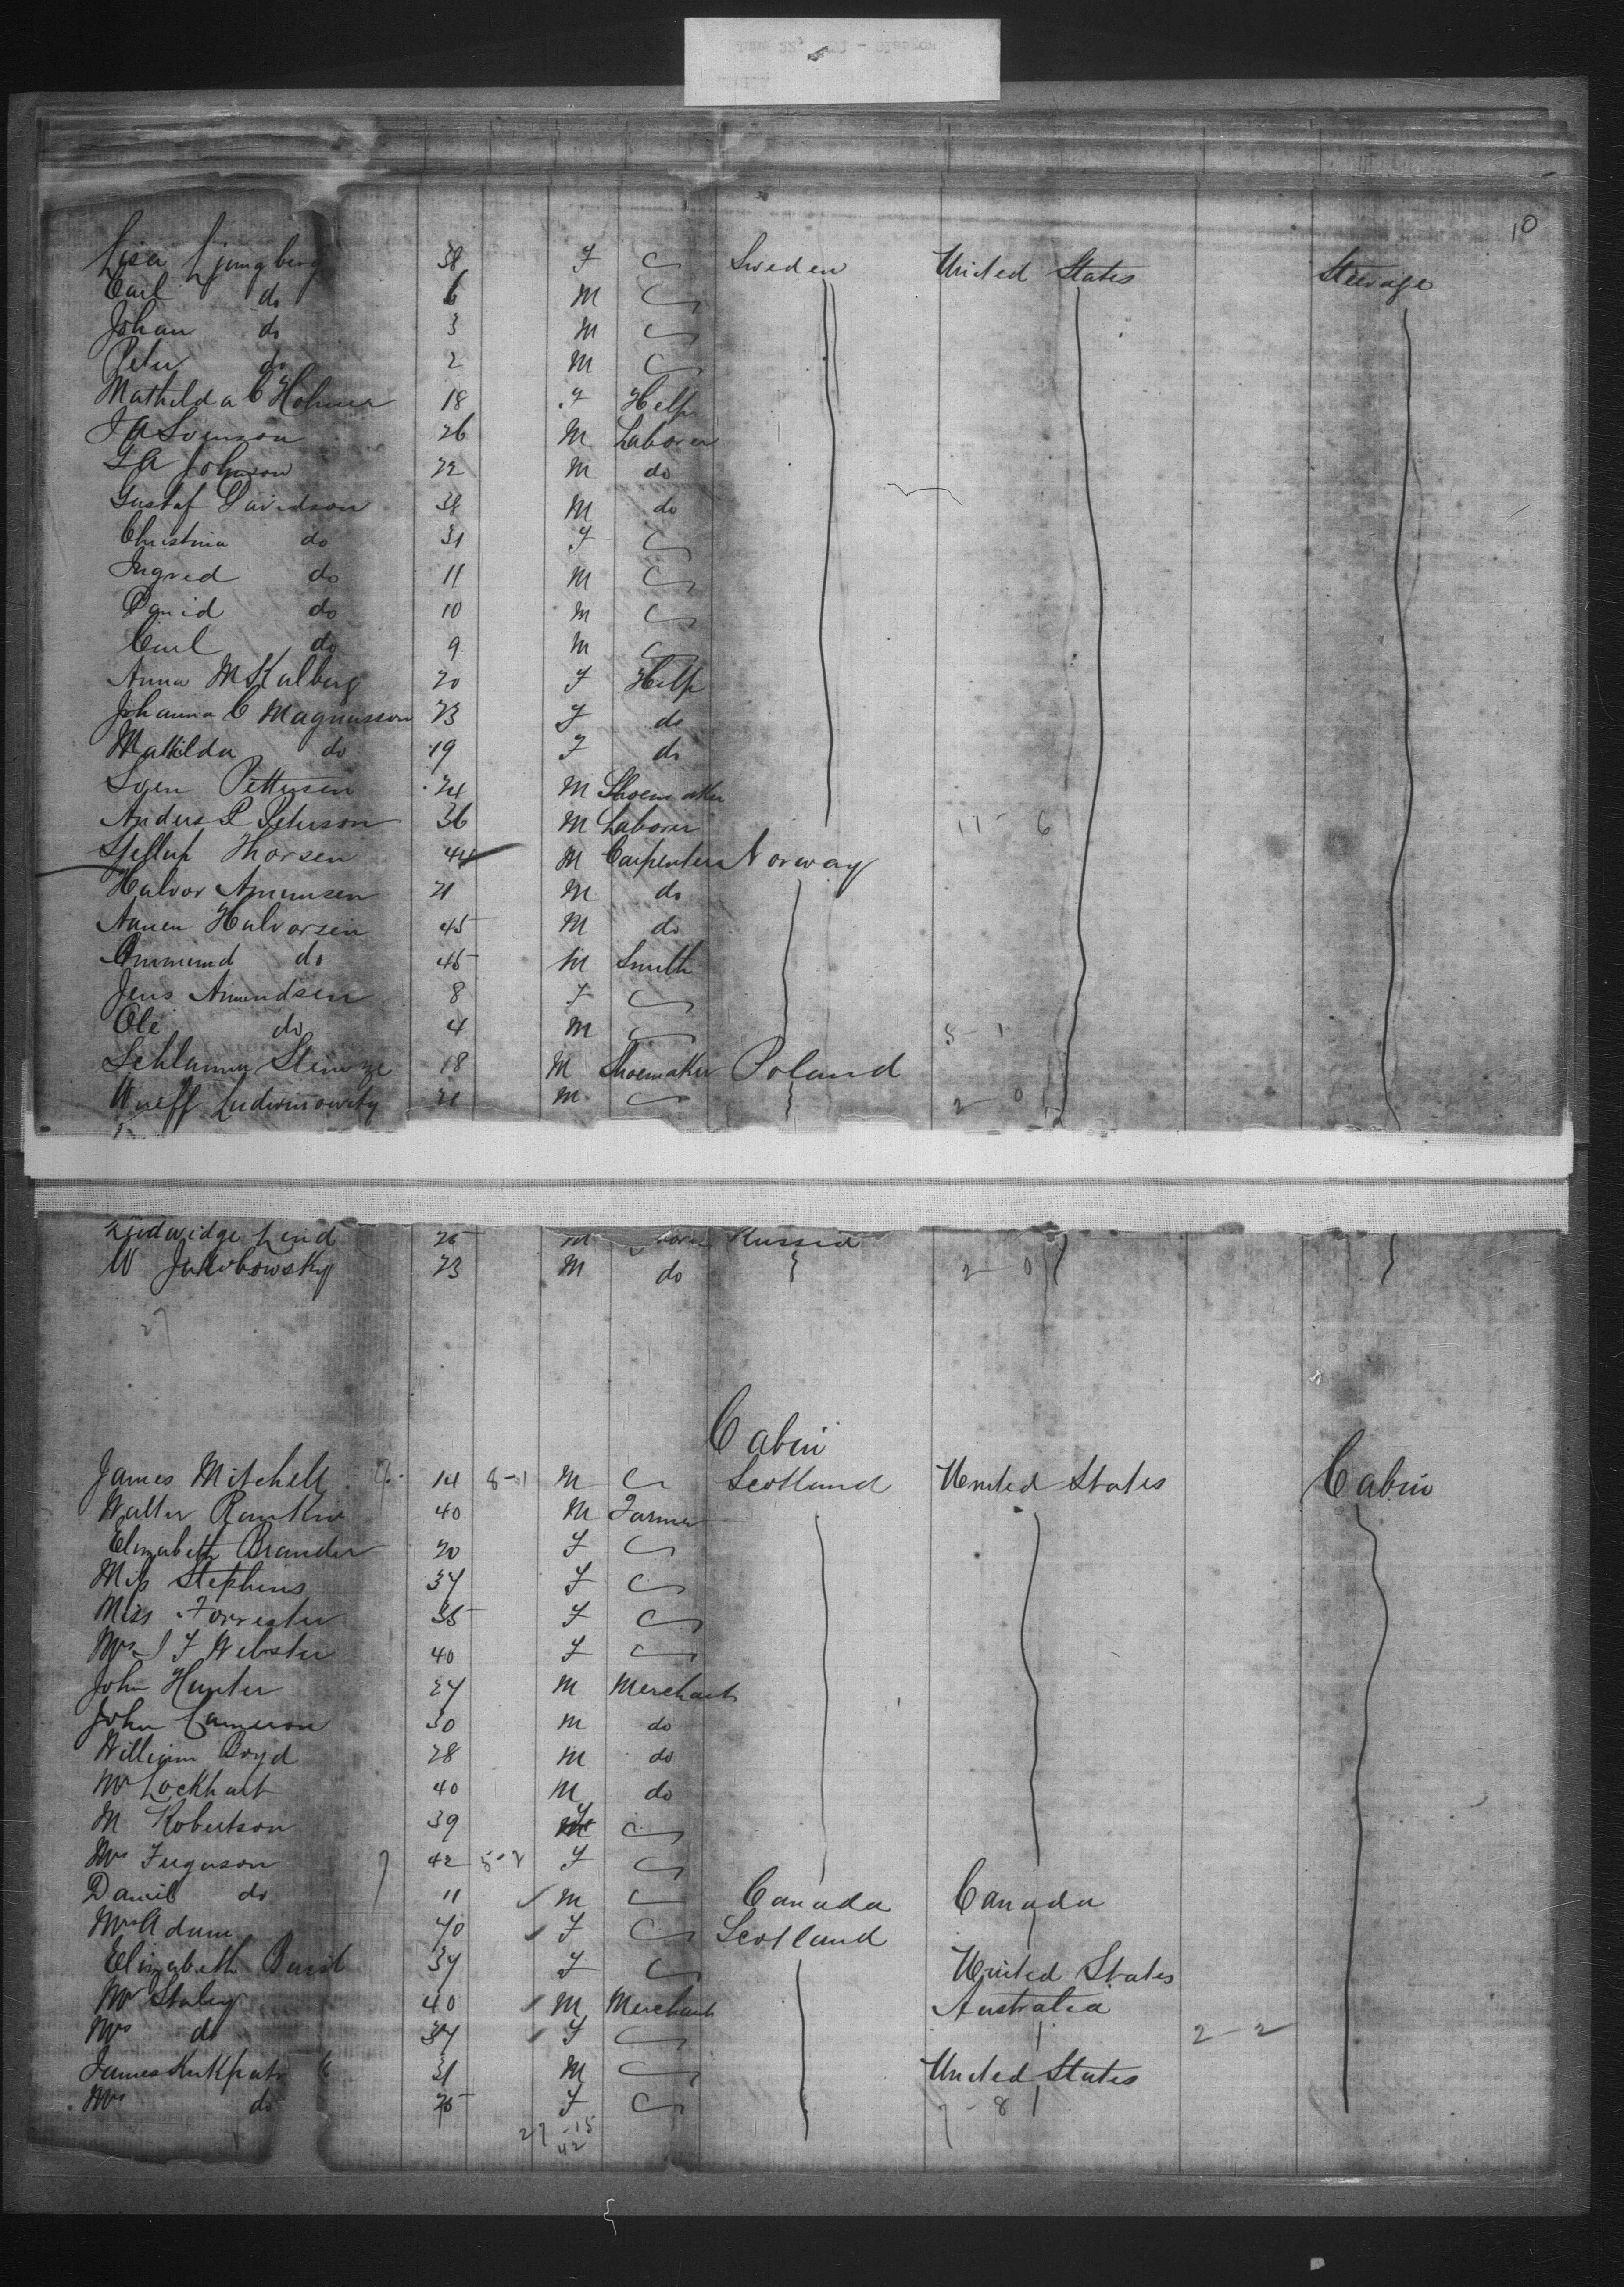 10
Lisa Ljungberg 38 F Sweden United States Steerage
Carl do 6 M
Johan do 3 M
Peter do 2 M
Mathilda C Holmer 18 F Help
J A Svenson 26 M Laborer
G A Johnson 22 M do
Gustaf Davidson 38 M do
Christina do 31 F
Ingred do 11 M
David do 10 M
Carl do 9 M
Anna M Kalberg 20 F Help
Johanna C Magnusson 23 F do
Mathilda do 19 F do
Sven Pettersen 24 M Shoemaker
Anders P Peterson 36 M Laborer 11 - 6
Thorsen 44 M Carpenter Norway
Halvor Amunsen 21 M do
Halvorsen 45 M do
Ammund do 45 M Smith
Jens Amundsen 8 F
Ole do 4 M 5 - 1
Schlamm 18 M Shoemaker Poland
Wueff 21 M 2 - 0
Ludwidge Lind 25 M Russia
W Jakobowsky 23 M do 2 - 0
27
Cabin
James Mitchell 14 8-1 M Scotland United States Cabin
Walter Rankin 40 M Farmer
Elizabeth Brander 20 F
Miss Stephens 34 F
Miss Forrester 35 F
Mrs J F Webster 40 F
John Hunter 24 M Merchant
John Cameron 30 M do
William Boyd 28 M do
Mr Lockhart 40 M do
M Robertson 39 F
Mrs Ferguson 42 5-7 F
Daniel do 11 M Canada Canada
Mrs Adam 40 F Scotland
Elizabeth 34 F United States
Mr Staley 40 M Merchant Australia
Mrs do 34 F 2 - 2
James Kirkpatr 31 M United States
Mrs do 25 F 7 - 8
27 - 15
42